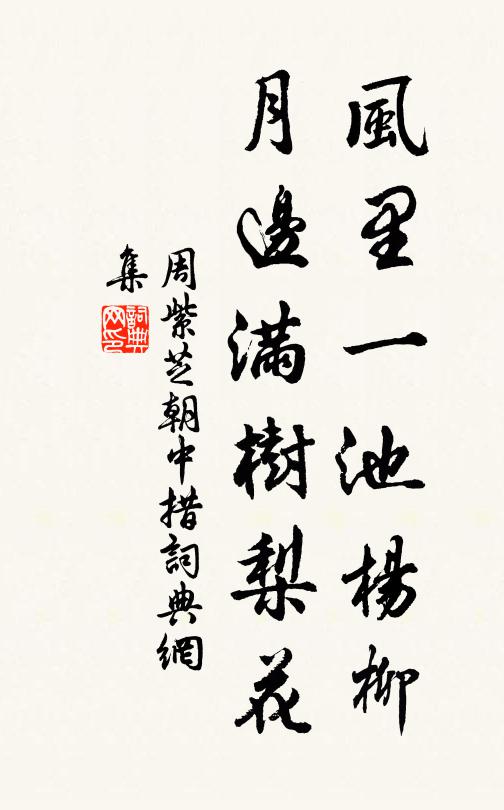 風里一池楊柳
月邊滿樹梨花
周紫芝朝中措詞典網
集
詞典
网印